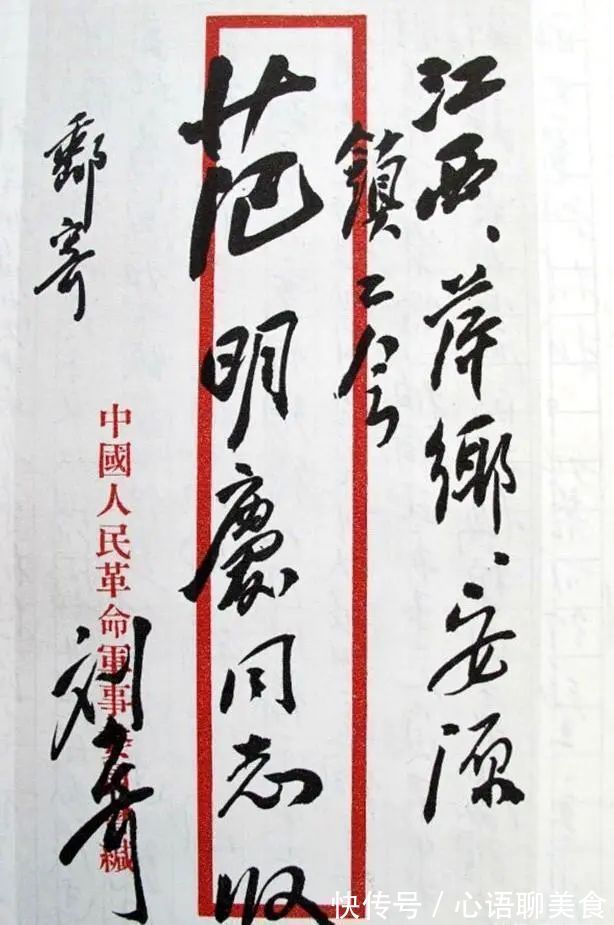 江西、萍鄉、安源
鎮工会
范明慶同志收
郵寄
中國人民革命軍事緘
刘
快传号 / 心语聊美食